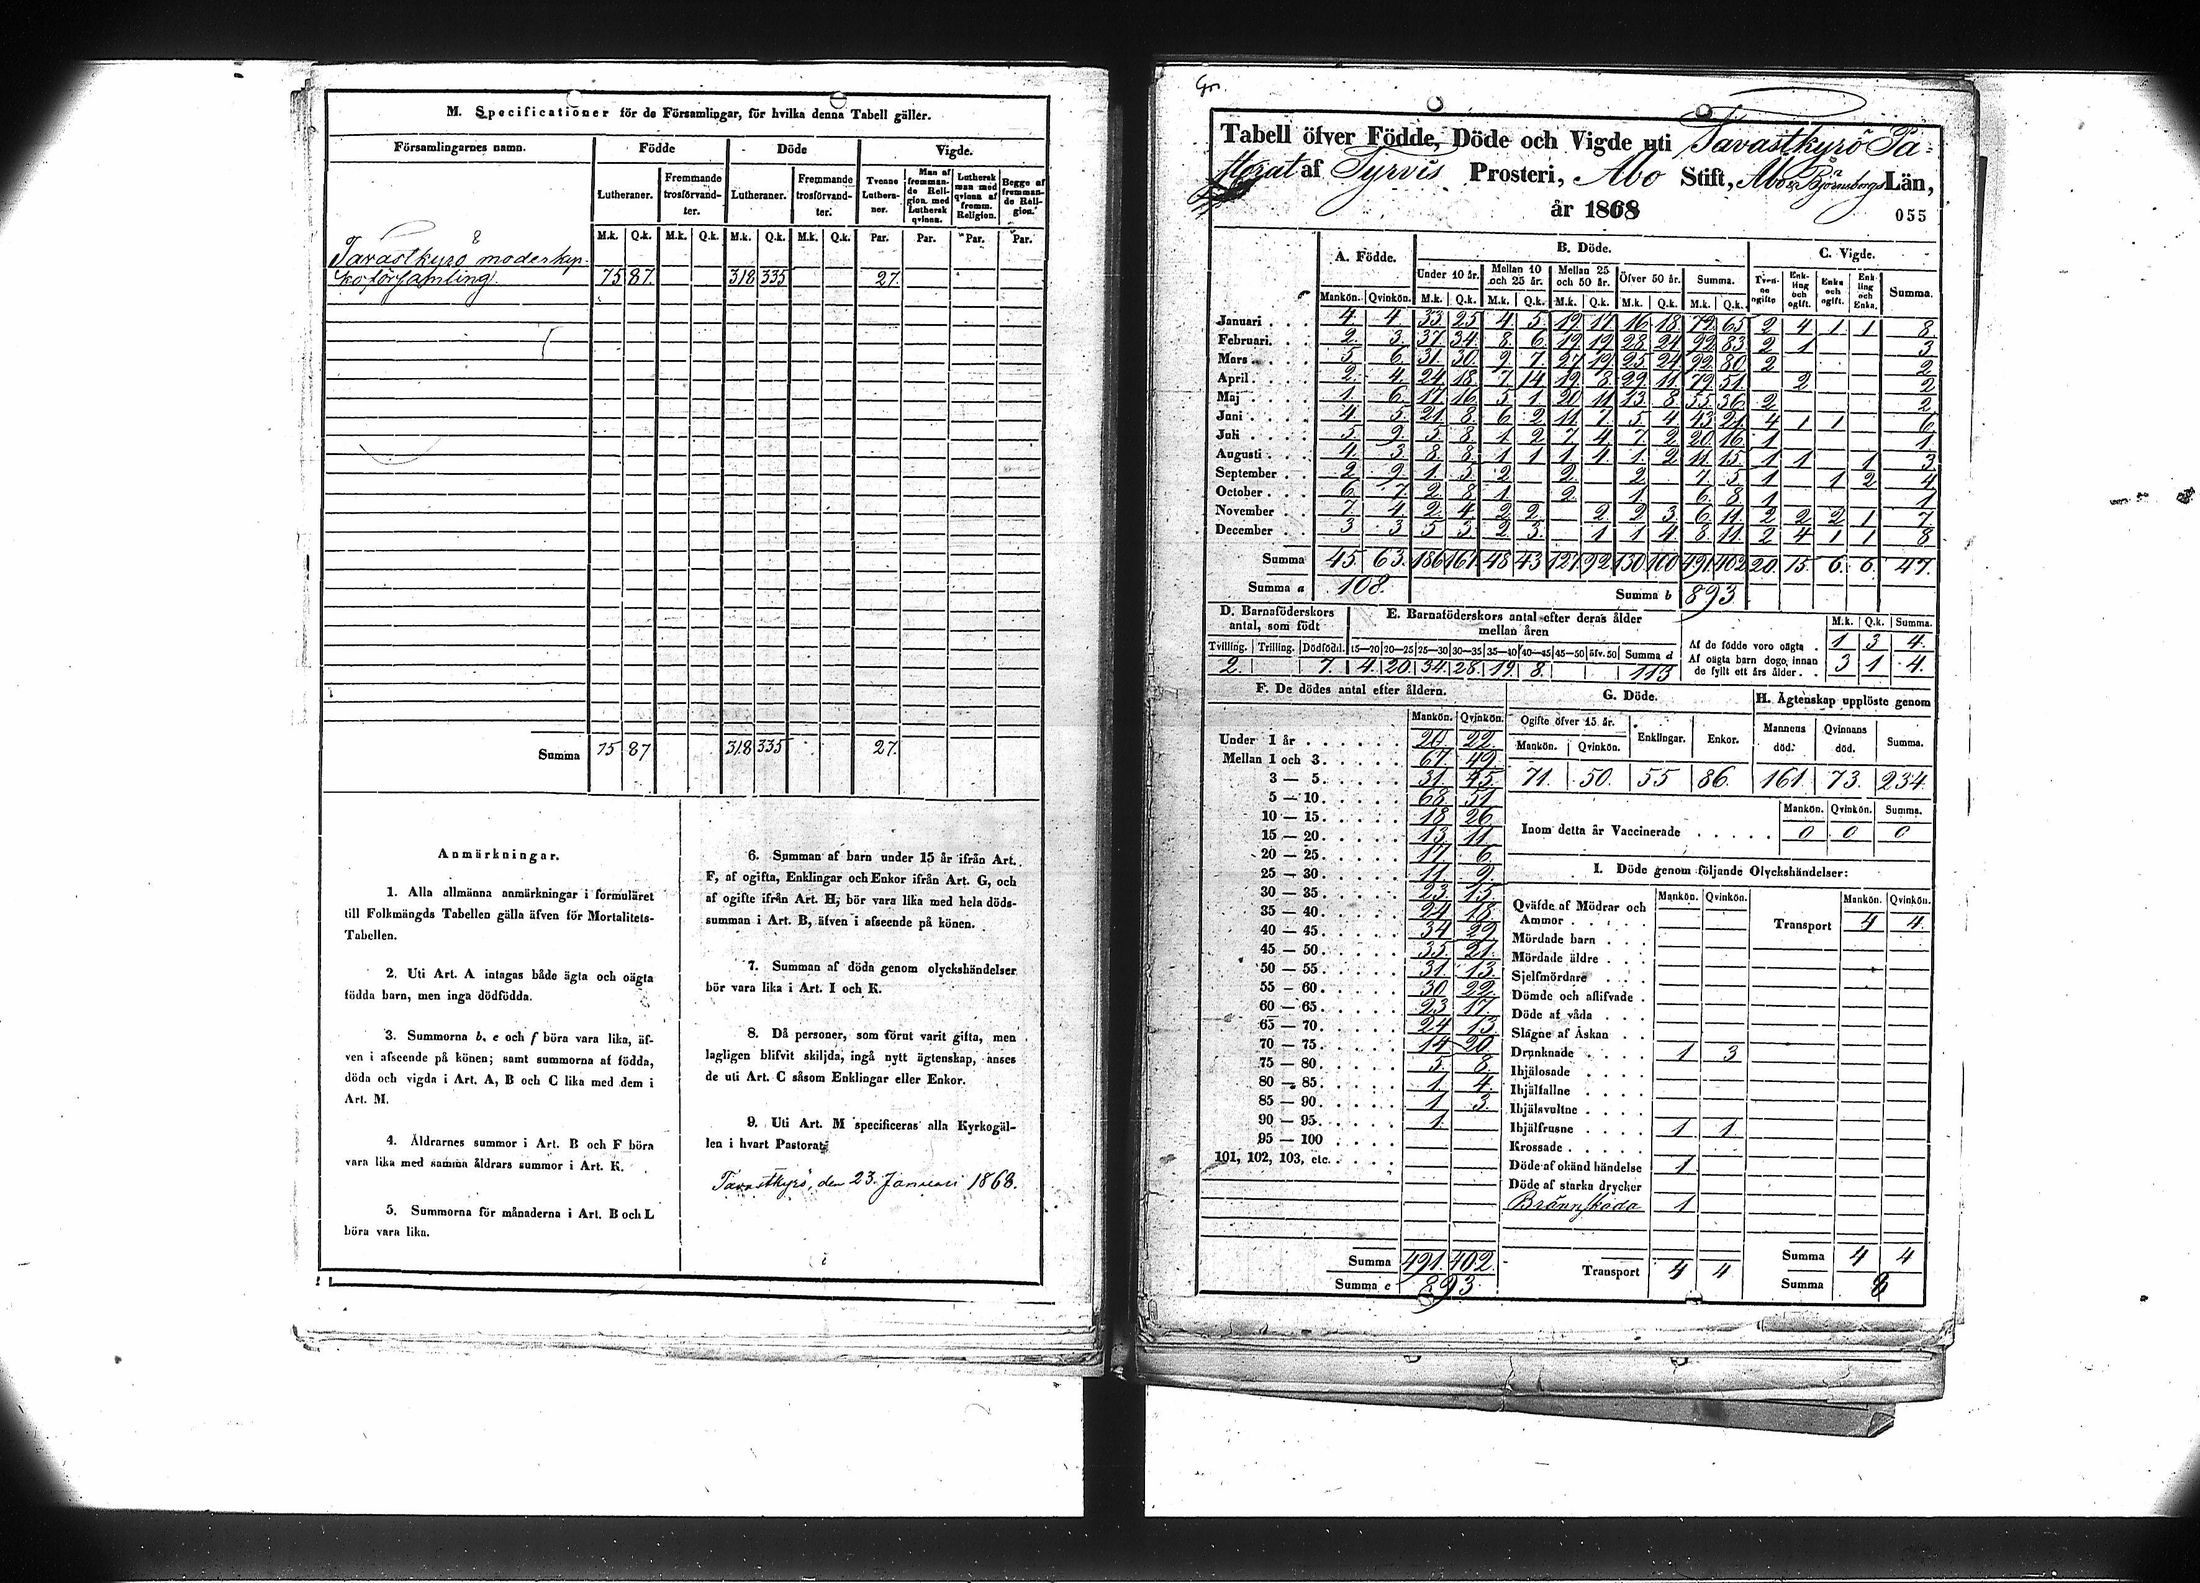 M. Specificationer för de Församlingar, för hvilka denna Tabell gäller.
Församlingarnes namn. Födde Döde Vigde.
Lutheraner. Fremmande trosförvandter. Lutheraner. Fremmande trosförvandter. Tvenne Lutheraner. Man af fremmande Religion med Luthersk qvinna. Luthersk man med qvinna af fremm. Religion. Begge af fremmande Religion.
M.k. Q.k. M.k. Q.k. M.k. Q.k. M.k. Q.k. Par. Par. Par. Par.
Tavastkyrö moderkyr-
koförsamling. 75 87. 318 335 27.
Summa 75 87 318 335 27.
Anmärkningar.
1. Alla allmänna anmärkningar i formuläret
till Folkmängds Tabellen gälla äfven för Mortalitets-
Tabellen.
2. Uti Art. A intagas både ägta och oägta
födda barn, men inga dödfödda.
3. Summorna b, e och f böra vara lika, äf-
ven i afseende på könen; samt summorna af födda,
döda och vigda i Art. A, B och C lika med dem i
Art. M.
4. Åldrarnes summor i Art. B och F böra
vara lika med samma åldrars summor i Art. K.
5. Summorna för månaderna i Art. B och L
böra vara lika.
6. Summan af barn under 15 år ifrån Art.
F, af ogifta, Enklingar och Enkor ifrån Art. G, och
af ogifte ifrån Art. H, bör vara lika med hela döds-
summan i Art. B, äfven i afseende på könen.
7. Summan af döda genom olyckshändelser
bör vara lika i Art. I och K.
8. Då personer, som förut varit gifta, men
lagligen blifvit skiljda, ingå nytt ägtenskap, anses
de uti Art. C såsom Enklingar eller Enkor.
9. Uti Art. M specificeras alla Kyrkogäl-
len i hvart Pastorat.
Tavastkyrö, den 23. Januari 1868.
Tabell öfver Födde, Döde och Vigde uti Tavastkyrö Pa-
storat af Tyrvis Prosteri, Åbo Stift, Åbo & Björneborgs Län,
år 1868
055
A. Födde. B. Döde. C. Vigde.
Under 10 år. Mellan 10 och 25 år. Mellan 25 och 50 år. Öfver 50 år. Summa. Tvenne ogifte Enkling och ogift. Enka och ogift. Enkling och Enka. Summa.
Mankön. Qvinkön. M.k. Q.k. M.k. Q.k. M.k. Q.k. M.k. Q.k. M.k. Q.k.
Januari 4 4 33 25 4 5 19 17 16 18 72 65 2 4 1 1 8
Februari 2 3 37 34 8 6 19 19 28 24 92 83 2 1 3
Mars 5 6 31 30 9 7 27 19 25 24 92 80 2 2
April 2 4 24 18 7 14 19 8 29 11 79 51 2 2
Maj 1 6 17 16 5 1 20 11 13 8 55 36 2 2
Juni 4 5 21 8 6 2 11 7 5 4 43 21 4 1 1 6
Juli 5 9 5 8 1 2 7 4 7 2 20 16 1 1
Augusti 4 3 8 8 1 1 1 4 1 2 11 15 1 1 1 3
September 2 9 1 5 2 2 2 7 5 1 1 2 4
October 6 7 2 8 1 2 1 6 8 1 1
November 7 4 2 4 2 2 2 2 3 6 11 2 2 2 1 7
December 3 3 5 3 2 3 1 1 4 8 11 2 4 1 1 8
Summa 45 63 186 167 48 43 127 92 130 100 491 402 20 15 6 6 47
Summa a 108. Summa b 893
D. Barnaföderskors antal, som födt
E. Barnaföderskors antal efter deras ålder mellan åren
Tvilling. Trilling. Dödfödd. 15—20 20—25 25—30 30—35 35—40 40—45 45—50 öfv. 50 Summa d
2. 7. 4. 20. 34. 28. 19. 8. 113
M.k. Q.k. Summa.
Af de födde voro oägta 1 3 4.
Af oägta barn dogo innan de fyllt ett års ålder 3 1 4.
F. De dödes antal efter åldern.
Mankön. Qvinkön.
Under 1 år 20 22
Mellan 1 och 3 67 49
3 — 5 31 45
5 — 10 68 51
10 — 15 18 26
15 — 20 13 11
20 — 25 17 6
25 — 30 11 9
30 — 35 23 15
35 — 40 24 18
40 — 45 34 29
45 — 50 35 21
50 — 55 31 13
55 — 60 30 22
60 — 65 23 17
65 — 70 24 13
70 — 75 14 20
75 — 80 5 8
80 — 85 1 4
85 — 90 1 3
90 — 95 1
95 — 100
101, 102, 103, etc.
Summa 491 402
Summa c 893
G. Döde.
Ogifte öfver 15 år. Enklingar. Enkor.
Mankön. Qvinkön.
71. 50. 55 86.
H. Ägtenskap upplöste genom
Mannens död. Qvinnans död. Summa.
161 73. 234.
Mankön. Qvinkön. Summa.
Inom detta år Vaccinerade 0 0 0
I. Döde genom följande Olyckshändelser:
Mankön. Qvinkön. Mankön. Qvinkön.
Qväfde af Mödrar och Ammor
Transport 4 4
Mördade barn
Mördade äldre
Sjelfmördare
Dömde och aflifvade
Döde af våda
Slagne af Åskan
Drunknade 1 3
Ihjälosade
Ihjälfallne
Ihjälsvultne
Ihjälfrusne 1 1
Krossade
Döde af okänd händelse 1
Döde af starka drycker
Brännskada 1
Transport 4 4
Summa 4 4
Summa 8